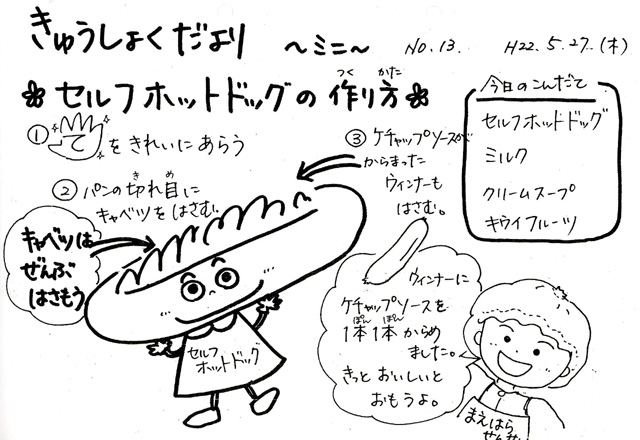 きゅうしょくだより 〜ミニ〜 No.13. H22.5.27.(木)
❀セルフホットドッグの作り方❀
つく かた
①てをきれいにあらう
②パンの切れ目に
き め
キャベツをはさむ。
キャベツは
ぜんぶ
はさもう
③ケチャップソースが
からまった
ウィンナーも
はさむ。
今日のこんだて
セルフホットドッグ
ミルク
クリームスープ
キウイフルーツ
セルフ
ホットドッグ
ウィンナーに
ケチャップソースを
ぽん ぽん
1本1本からめ
ました。
きっとおいしいと
おもうよ。
まえはら